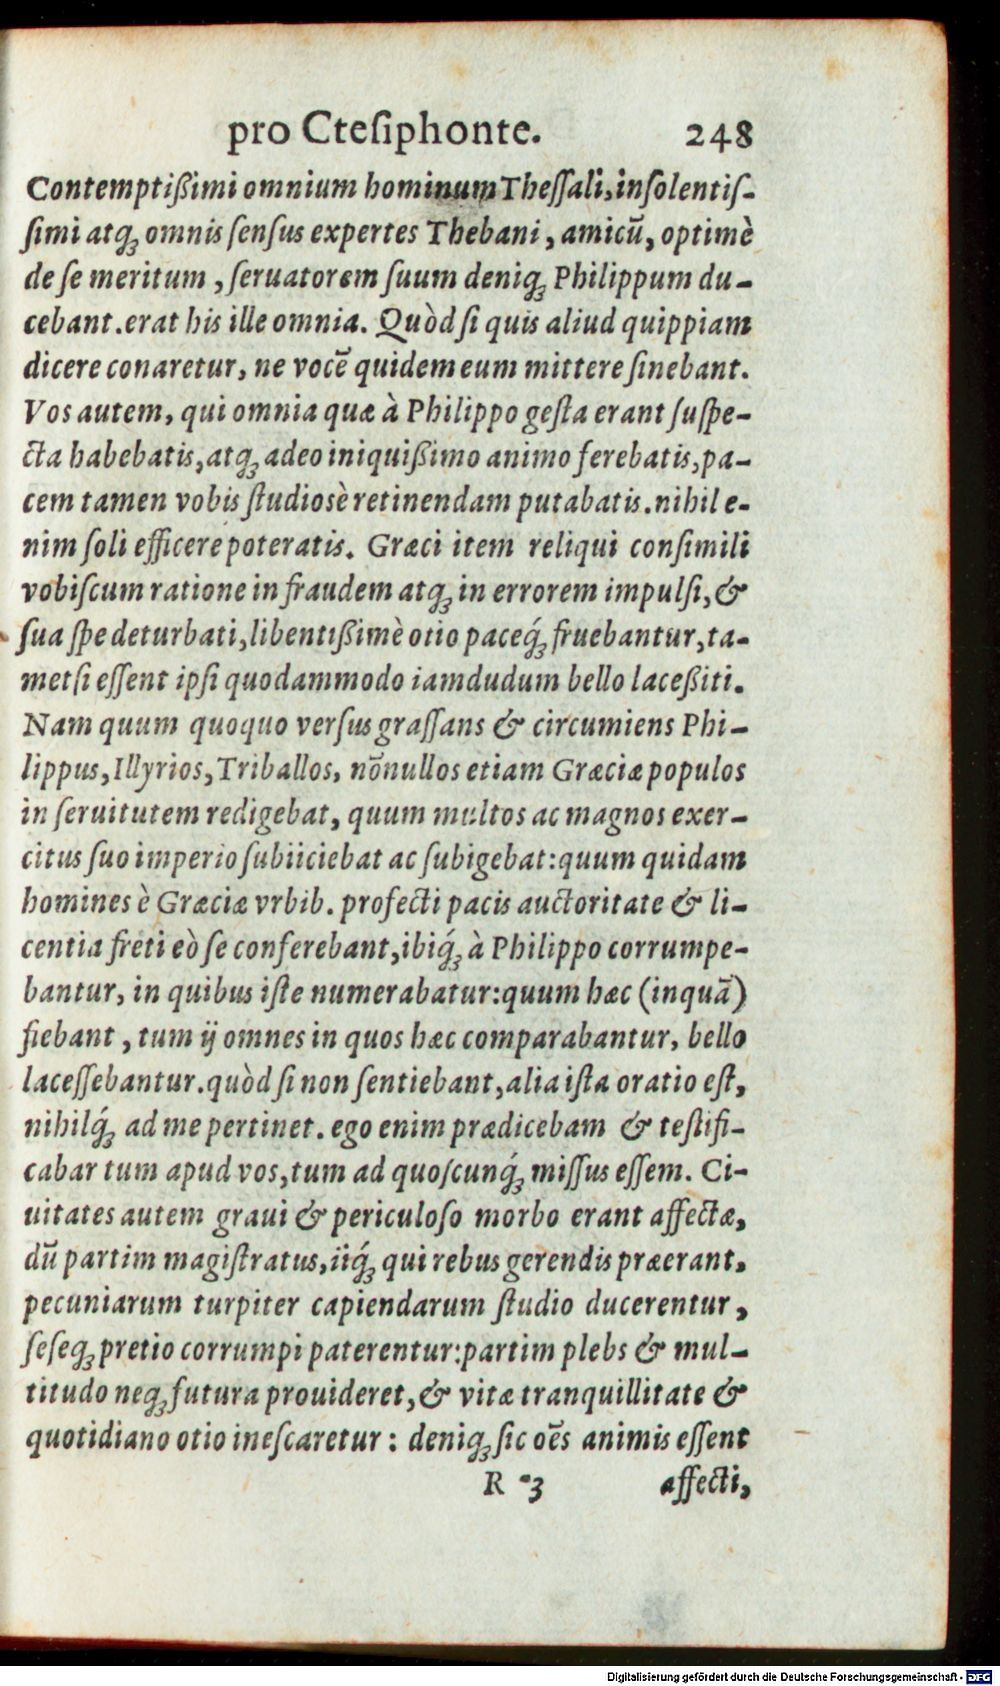 pro Cteſiphonte. 248
Contemptißimi omnium hominum Theſſali, inſolentiſ-
ſimi atq́; omnis ſenſus expertes Thebani, amicũ, optimè
de ſe meritum, ſeruatorem ſuum deniq; Philippum du-
cebant. erat his ille omnia. Quòd ſi quis aliud quippiam
dicere conaretur, ne vocẽ quidem eum mittere ſinebant.
Vos autem, qui omnia quæ à Philippo geſta erant ſuſpe-
cta habebatis, atq; adeo iniquißimo animo ferebatis, pa-
cem tamen vobis ſtudiosè retinendam putabatis. nihil e-
nim ſoli efficere poteratis. Græci item reliqui conſimili
vobiſcum ratione in fraudem atq; in errorem impulſi, &
ſua ſpe deturbati, libentißimè otio paceq́; fruebantur, ta-
metſi eſſent ipſi quodammodo iamdudum bello laceßiti.
Nam quum quoquo verſus graſſans & circumiens Phi-
lippus, Illyrios, Triballos, nõnullos etiam Græciæ populos
in ſeruitutem redigebat, quum multos ac magnos exer-
citus ſuo imperio ſubiiciebat ac ſubigebat: quum quidam
homines è Græciæ vrbib. profecti pacis auctoritate & li-
centia freti eò ſe conferebant, ibiq́; à Philippo corrumpe-
bantur, in quibus iſte numerabatur: quum hæc (inquã)
fiebant, tum ij omnes in quos hæc comparabantur, bello
laceſſebantur. quòd ſi non ſentiebant, alia iſta oratio eſt,
nihilq́; ad me pertinet. ego enim prædicebam & teſtifi-
cabar tum apud vos, tum ad quoſcunq́; miſſus eſſem. Ci-
uitates autem graui & periculoſo morbo erant affectæ,
dũ partim magiſtratus, iiq́; qui rebus gerendis præerant,
pecuniarum turpiter capiendarum ſtudio ducerentur,
ſeſeq; pretio corrumpi paterentur: partim plebs & mul-
titudo neq; futura prouideret, & vitæ tranquillitate &
quotidiano otio ineſcaretur: deniq; ſic oẽs animis eſſent
R 3 affecti,
Digitalisierung gefördert durch die Deutsche Forschungsgemeinschaft - DFG